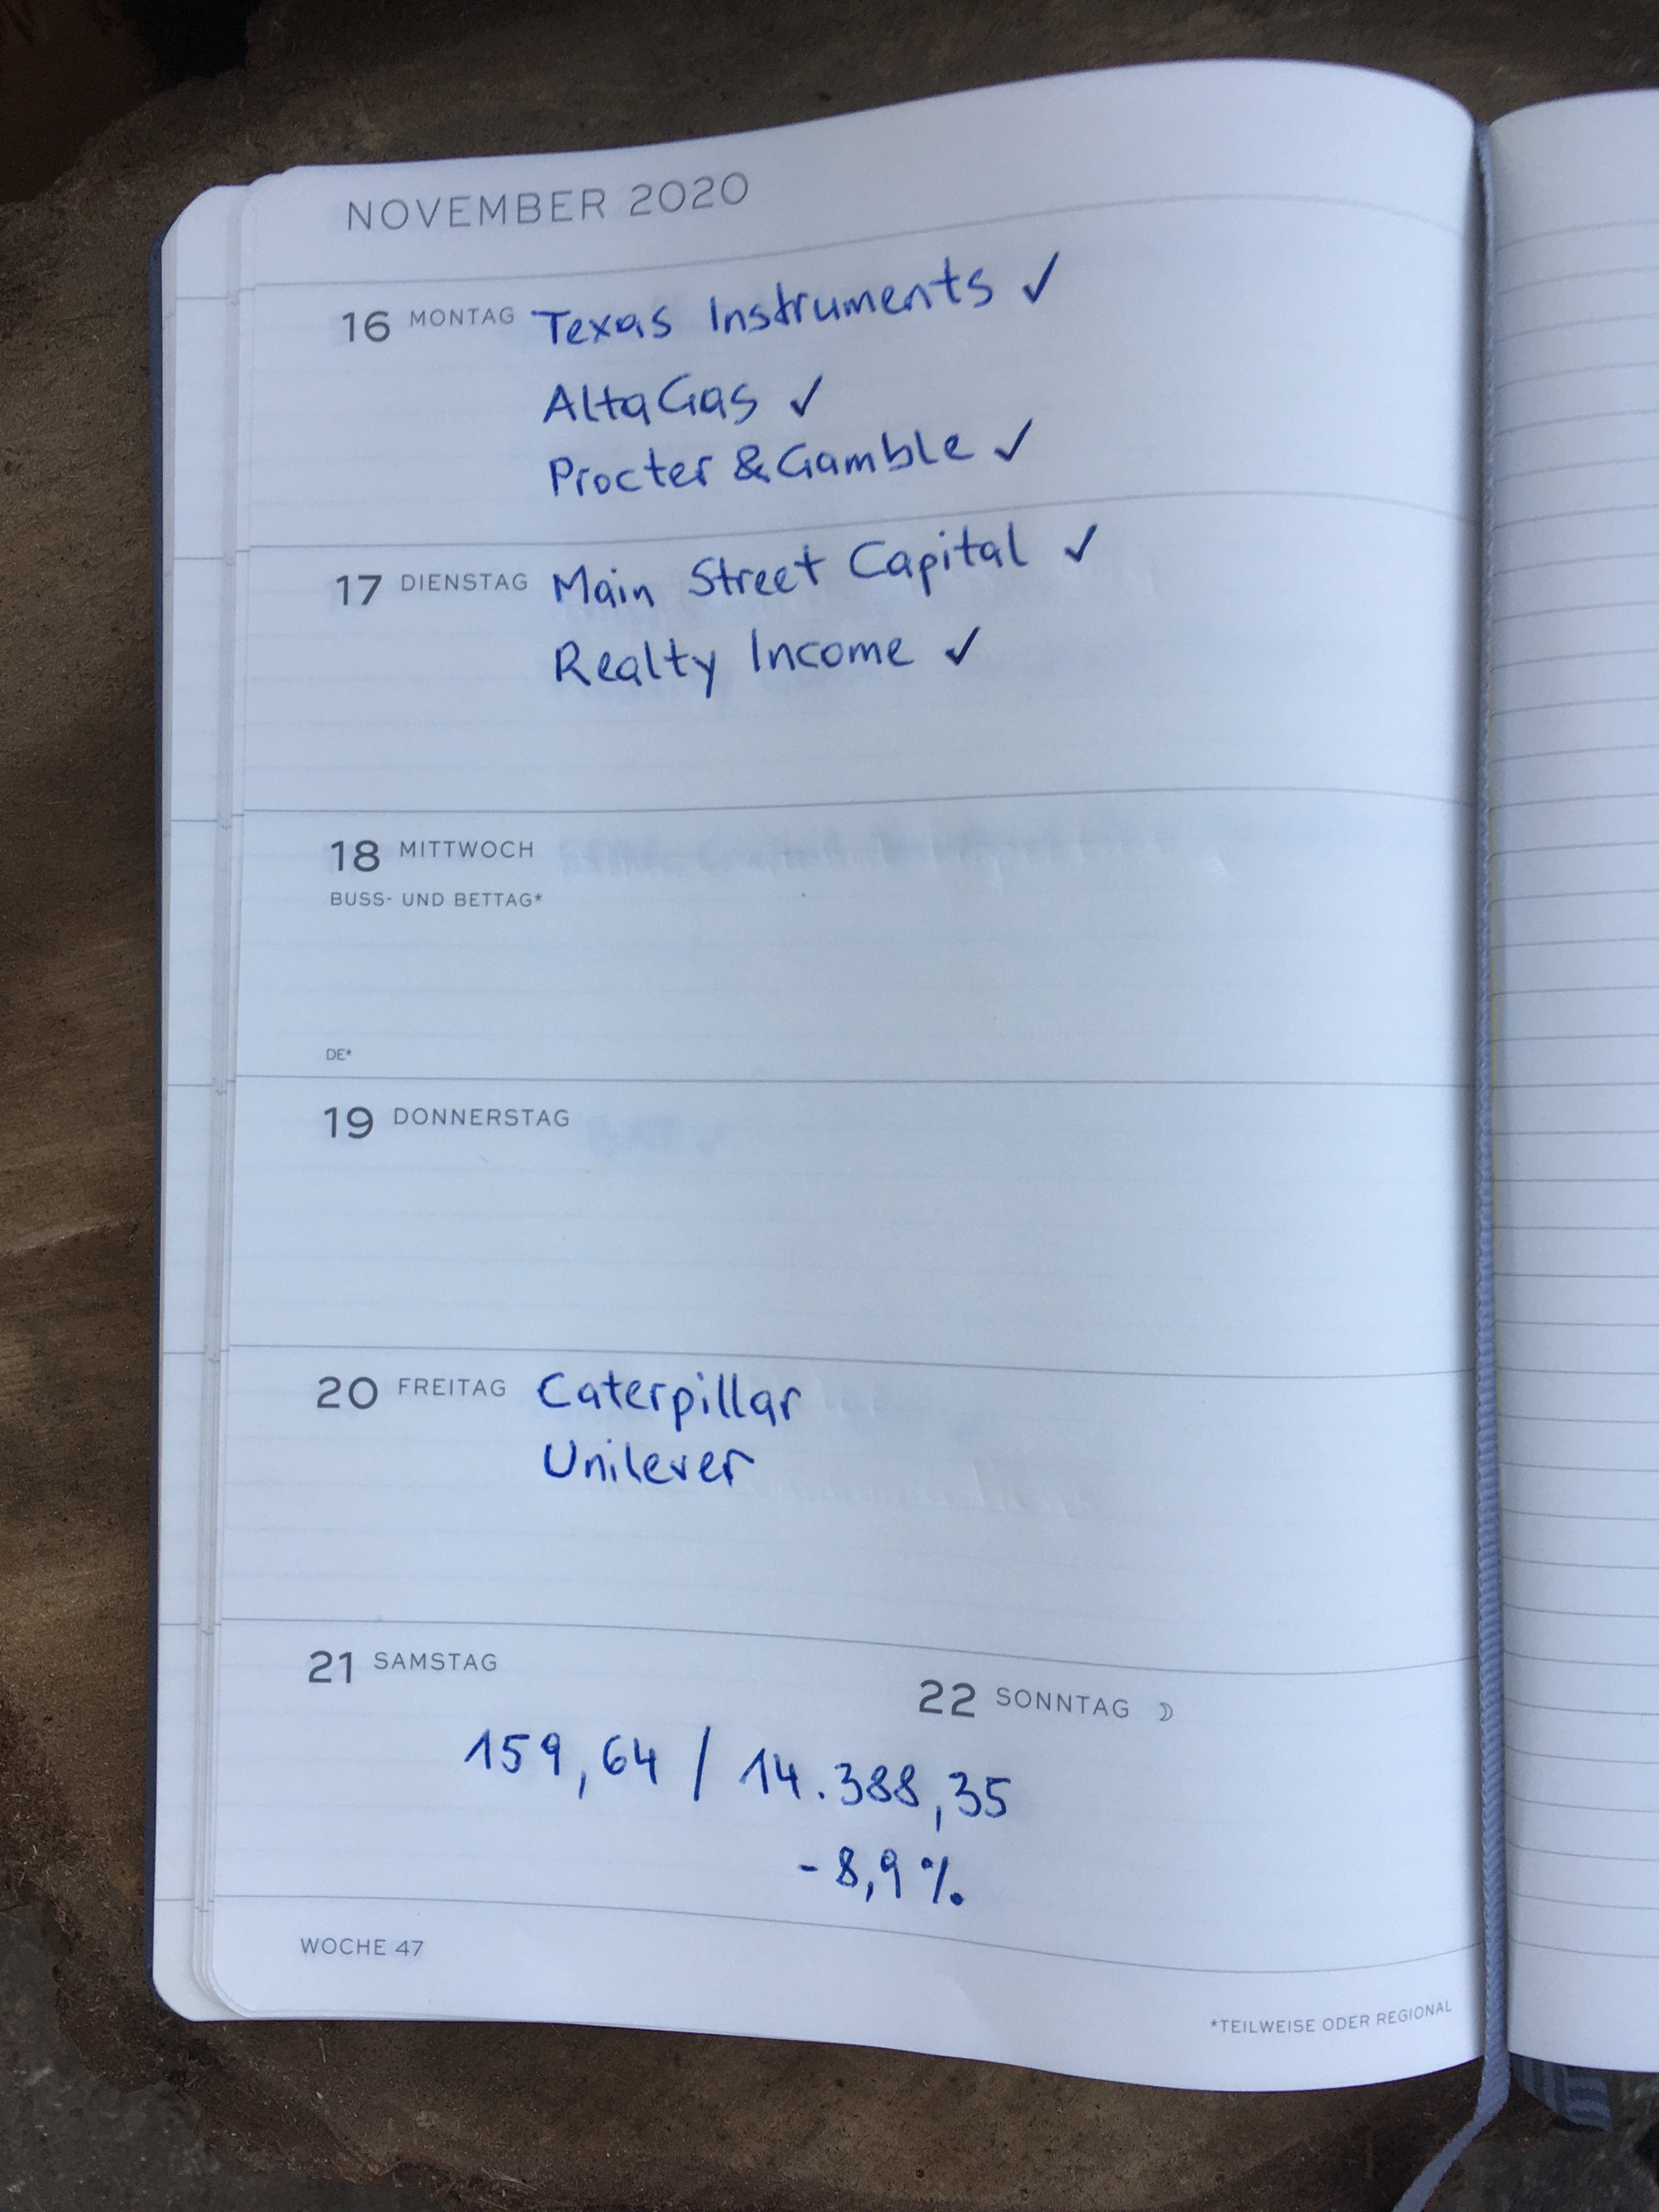 NOVEMBER 2020
16 MONTAG Texas Instruments ✓
AltaGas ✓
Procter & Gamble ✓
17 DIENSTAG Main Street Capital ✓
Realty Income ✓
18 MITTWOCH
BUSS- UND BETTAG*
DE*
19 DONNERSTAG
20 FREITAG Caterpillar
Unilever
21 SAMSTAG
22 SONNTAG ☽
159,64 / 14.388,35
-8,9 %
WOCHE 47
*TEILWEISE ODER REGIONAL